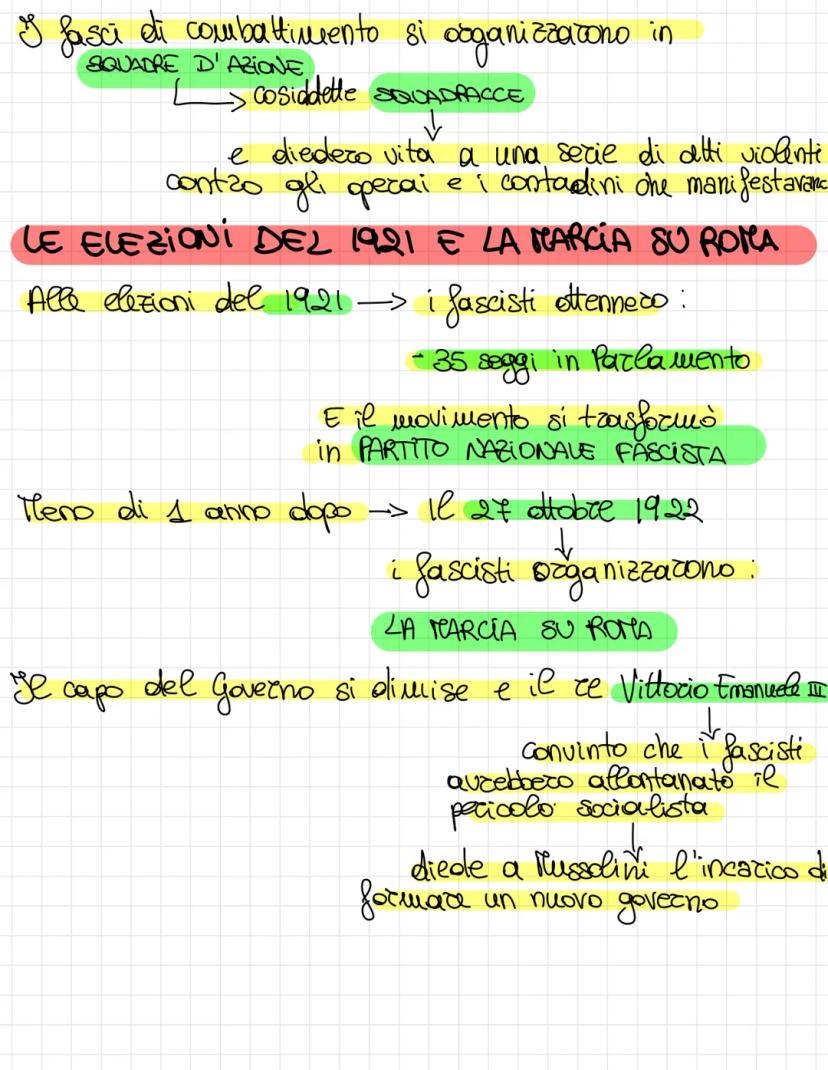 I fasci di combattimento si organizzarono in
SQUADRE D'AZIONE
→ cosiddette SQUADRACCE
↓
e diedero vita a una serie di atti violenti
contro gli operai e i contadini che manifestavano
LE ELEZIONI DEL 1921 E LA MARCIA SU ROMA
Alle elezioni del 1921 → i fascisti ottennero :
- 35 seggi in Parlamento
E il movimento si trasformò
in PARTITO NAZIONALE FASCISTA
Meno di 1 anno dopo → Il 27 ottobre 1922
↓
i fascisti organizzarono :
LA MARCIA SU ROMA
Il capo del Governo si dimise e il re Vittorio Emanuele III
↓
convinto che i fascisti
avrebbero allontanato il
pericolo socialista
↓
diede a Mussolini l'incarico di
formare un nuovo governo